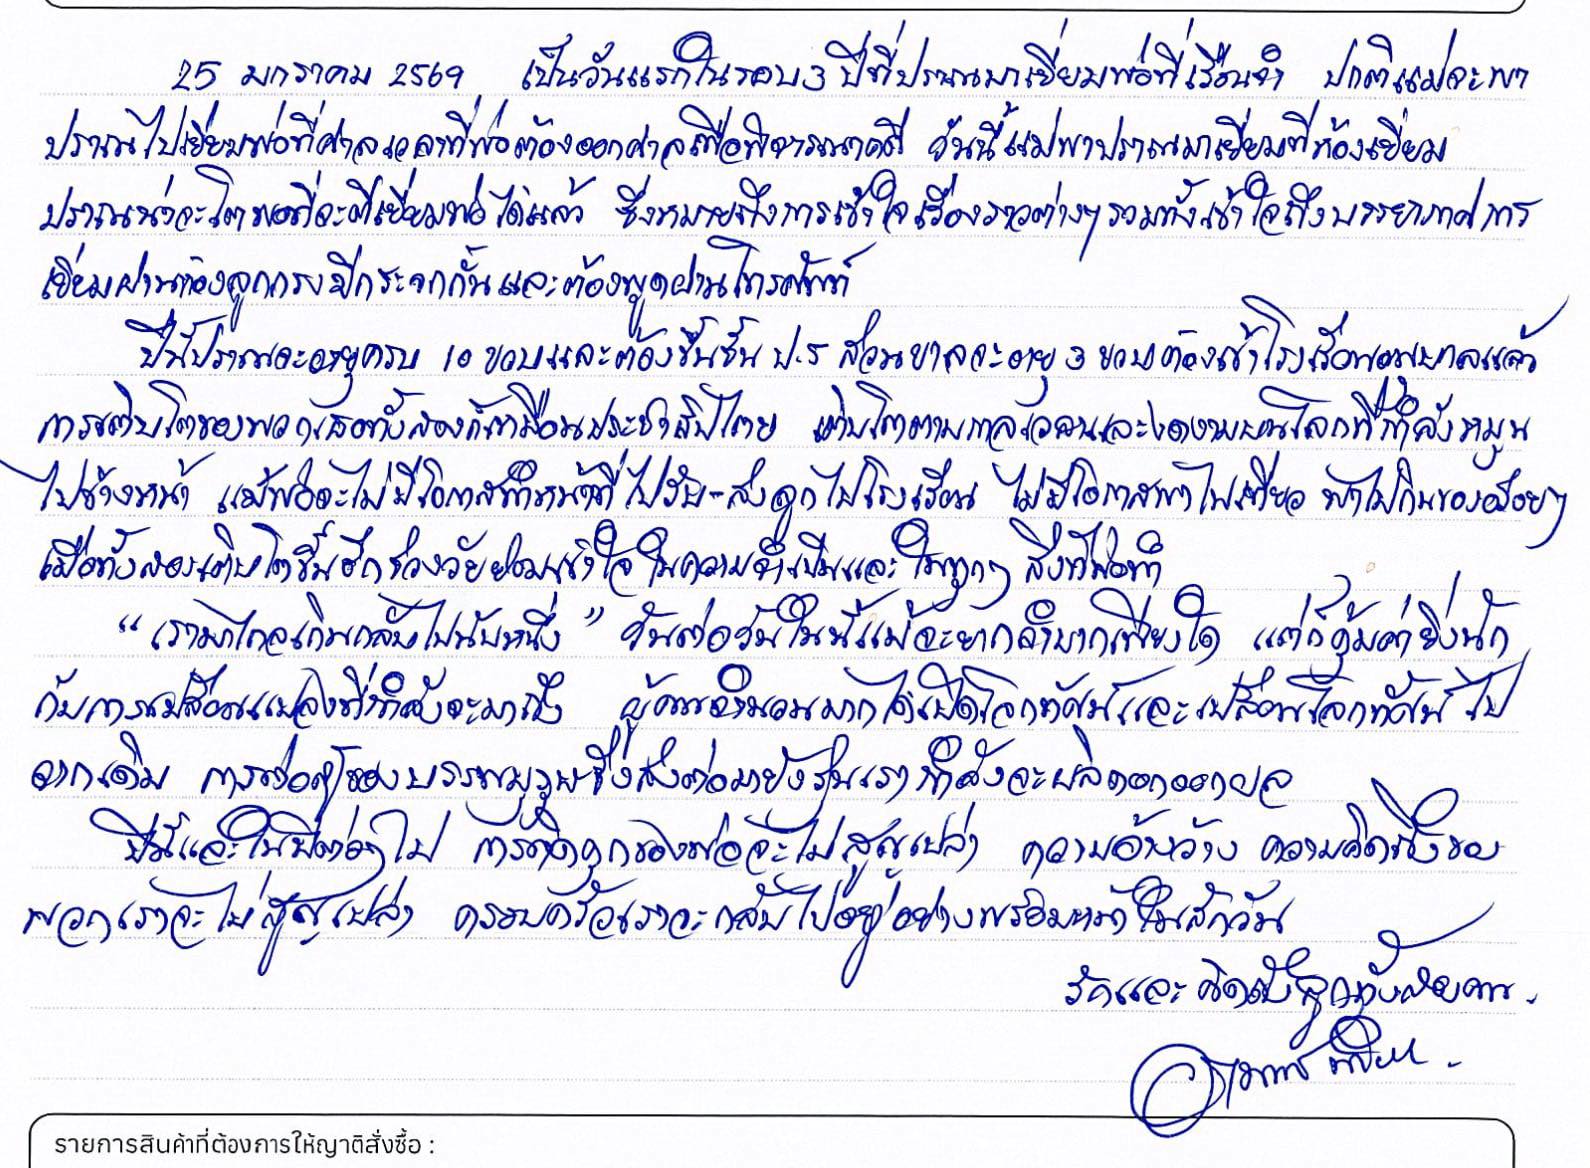 25 มกราคม 2569 เป็นวันแรกในรอบ 3 ปีที่ปราณมาเยี่ยมพ่อที่เรือนจำ ปกติแม่จะพา
ปราณไปเยี่ยมพ่อที่ศาลเวลาที่พ่อต้องออกศาลเพื่อพิจารณาคดี วันนี้แม่พาปราณมาเยี่ยมที่ห้องเยี่ยม
ปราณน่าจะโตพอที่จะตีเยี่ยมพ่อได้แล้ว ซึ่งหมายถึงการเข้าใจเรื่องราวต่างๆ รวมทั้งเข้าใจถึงบรรยากาศการ
เยี่ยมผ่านห้องลูกกรง มีกระจกกั้นและต้องพูดผ่านโทรศัพท์
ปีนี้ปราณจะอายุครบ 10 ขวบและต้องขึ้นชั้น ป.5 ส่วนขาลจะอายุ 3 ขวบต้องเข้าโรงเรียนอนุบาลแล้ว
การเติบโตของพวกเธอทั้งสองก็เหมือนประชาธิปไตย เติบโตตามกาลเวลาและงดงามบนโลกที่กำลังหมุน
ไปข้างหน้า แม้พ่อจะไม่มีโอกาสทำหน้าที่ไปรับ-ส่งลูกไปโรงเรียน ไม่มีโอกาสพาไปเที่ยว พาไปกินของอร่อยๆ
เมื่อทั้งสองเติบโตขึ้นอีกช่วงวัยย่อมเข้าใจในความจำเป็นและในทุกๆ สิ่งที่พ่อทำ
“เรามาไกลเกินกลับไปนับหนึ่ง” วันต่อวันในนี้แม้จะยากลำบากเพียงใด แต่ก็คุ้มค่ายิ่งนัก
กับการเปลี่ยนแปลงที่กำลังจะมาถึง ผู้คนจำนวนมากได้เปิดโลกทัศน์และเปลี่ยนโลกทัศน์ไป
จากเดิม การต่อสู้ของบรรพบุรุษซึ่งส่งต่อมายังรุ่นเรากำลังจะผลิดอกออกผล
ปีนี้และในปีต่อๆ ไป การติดคุกของพ่อจะไม่สูญเปล่า ความอ้างว้าง ความคิดถึงของ
พวกเราจะไม่สูญเปล่า ครอบครัวเราจะกลับไปอยู่อย่างพร้อมหน้าในสักวัน
รักและคิดถึงลูกทั้งสองคน.
รายการสินค้าที่ต้องการให้ญาติสั่งซื้อ :